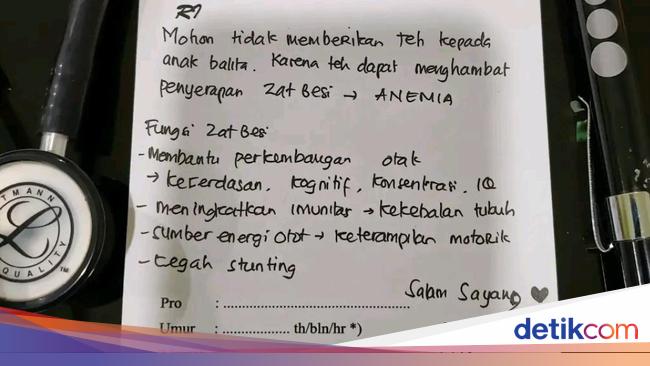 R/
Mohon tidak memberikan teh kepada
anak balita. Karena teh dapat menghambat
penyerapan Zat Besi → ANEMIA
Fungsi Zat Besi
- Membantu perkembangan otak
→ kecerdasan, kognitif, konsentrasi, IQ
- meningkatkan imunitas → kekebalan tubuh
- sumber energi otot → keterampilan motorik
- cegah stunting
Salam Sayang ♥
Pro : ..........................................
Umur : ................ th/bln/hr *)
TTMANN
QUALITY
™
detikcom